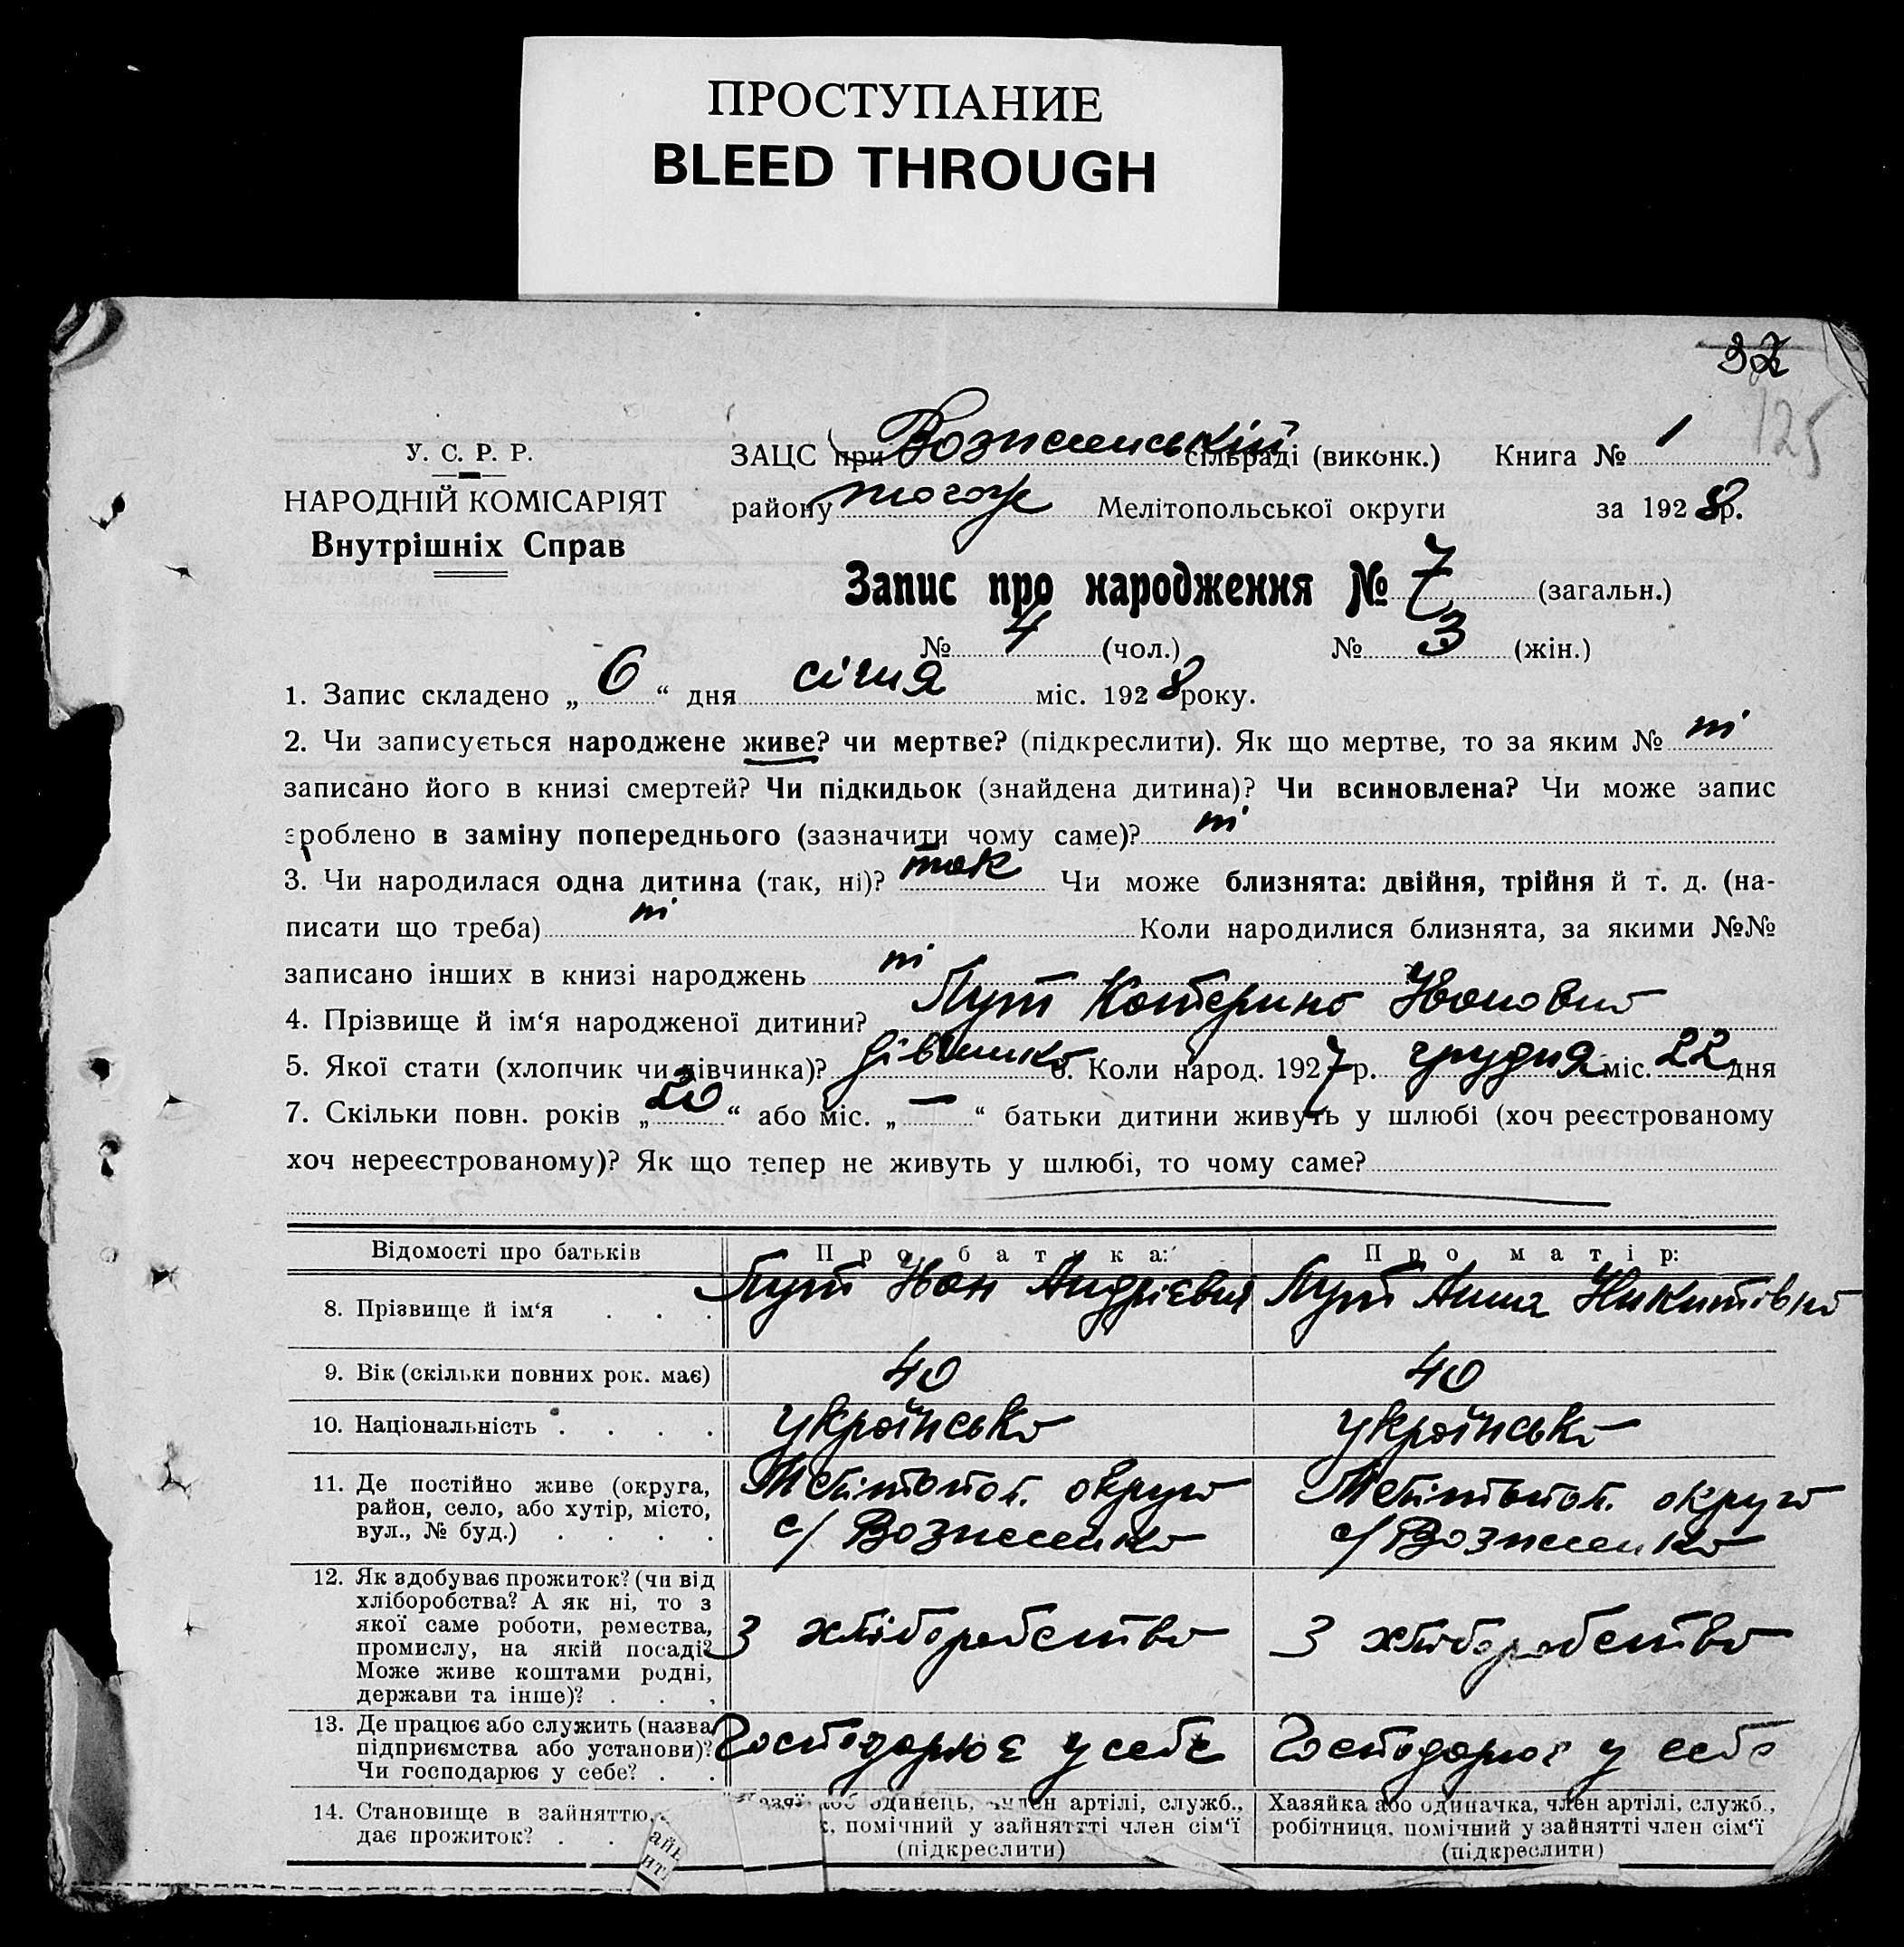 ПРОСТУПАНИЕ
BLEED THROUGH
32
125
У. С. Р. Р.
НАРОДНІЙ КОМІСАРІЯТ
Внутрішніх Справ
ЗАЦС при Вознесенській сільраді (виконк.) Книга № 1
району тогож Мелітопольської округи за 1928 р.
Запис про народження № 7 (загальн.)
№ 4 (чол.) № 3 (жін.)
1. Запис складено „ 6 “ дня січня міс. 1928 року.
2. Чи записується народжене живе? чи мертве? (підкреслити). Як що мертве, то за яким № ні
записано його в книзі смертей? Чи підкидьок (знайдена дитина)? Чи всиновлена? Чи може запис
зроблено в заміну попереднього (зазначити чому саме)? ні
3. Чи народилася одна дитина (так, ні)? так Чи може близнята: двійня, трійня й т. д. (на-
писати що треба) ні Коли народилися близнята, за якими №№
записано інших в книзі народжень ні
4. Прізвище й ім‘я народженої дитини? Пут Катерина Івановна
5. Якої стати (хлопчик чи дівчинка)? дівчинка 6. Коли народ. 1927 р. грудня міс. 22 дня
7. Скільки повн. років „ 20 “ або міс. „ — “ батьки дитини живуть у шлюбі (хоч реєстрованому
хоч нереєстрованому)? Як що тепер не живуть у шлюбі, то чому саме?
Відомості про батьків Про батька: Про матір:
8. Прізвище й ім‘я . . . Пут Іван Андрієвич Пут Анна Никитівна
9. Вік (скільки повних рок. має) 40 40
10. Національність . . . . українська українська
11. Де постійно живе (округа,
район, село, або хутір, місто,
вул., № буд.) . . . .
Мелітопол. округа
с/ Вознесенка
Мелітопол. округа
с/ Вознесенка
12. Як здобуває прожиток? (чи від
хліборобства? А як ні, то з
якої саме роботи, ремества,
промислу, на якій посаді?
Може живе коштами родні,
держави та інше)? . . .
З хліборобства З хліборобства
13. Де працює або служить (назва
підприємства або установи)?
Чи господарює у себе? . .
Господарює у себе Господарює у себе
14. Становище в зайняттю,
дає прожиток? . .
одинець, член артілі, служб.,
помічний у зайнятті член сім‘ї
(підкреслити)
Хазяйка або одиначка, член артілі, служб.,
робітниця, помічний у зайнятті член сім‘ї
(підкреслити)